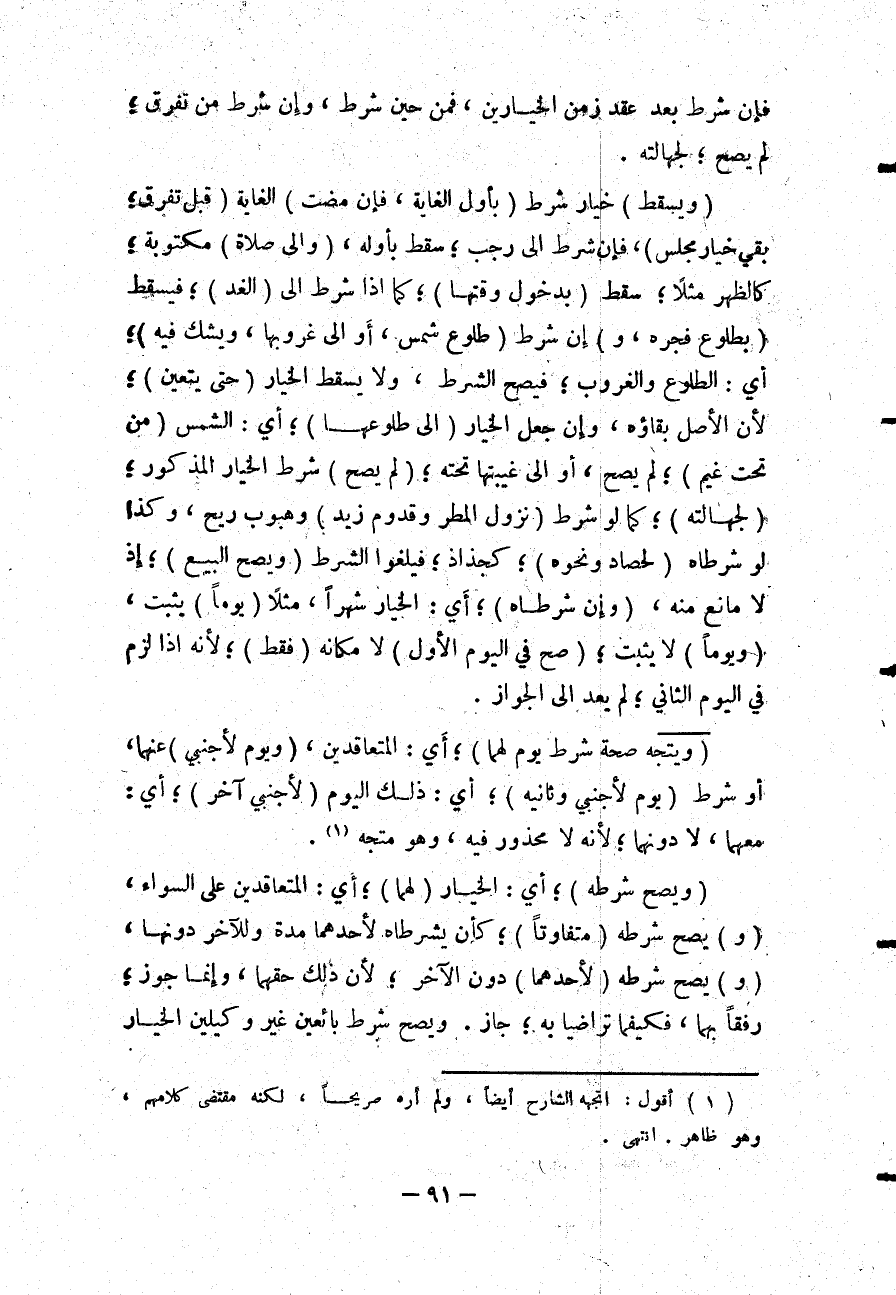 فإن شرط بعد عقد زمن الخيارين ، فمن حين شرط ، وإن شرط من تفرق ؛
لم يصح ؛ لجهالته .
( ويسقط ) خيار شرط ( بأول الغاية ، فإن مضت ) الغاية ( قبل تفرق ؛
بقي خيار مجلس ) ، فإن شرط الى رجب ؛ سقط بأوله ، ( والى صلاة ) مكتوبة ؛
كالظهر مثلًا ؛ سقط ( بدخول وقتها ) ؛ كما اذا شرط الى ( الغد ) ؛ فيسقط
( بطلوع فجره ، و ) إن شرط ( طلوع شمس ، أو الى غروبها ، ويشك فيه ) ؛
أي : الطلوع والغروب ؛ فيصح الشرط ، ولا يسقط الخيار ( حتى يتعين ) ؛
لأن الأصل بقاؤه ، وإن جعل الخيار ( الى طلوعهـا ) ؛ أي : الشمس ( من
تحت غيم ) ؛ لم يصح ، أو الى غيبتها تحته ؛ ( لم يصح ) شرط الخيار المذكور ؛
( لجهالته ) ؛ كما لو شرط ( نزول المطر وقدوم زيد ) وهبوب ريح ، وكذا
لو شرطاه ( لحصاد ونحوه ) ؛ كجذاذ ؛ فيلغوا الشرط ( ويصح البيع ) ؛ إذ
لا مانع منه ، ( وإن شرطاه ) ؛ أي : الخيار شهراً ، مثلًا ( يوماً ) يثبت ،
( ويوماً ) لا يثبت ؛ ( صح في اليوم الأول ) لا مكانه ( فقط ) ؛ لأنه اذا لزم
في اليوم الثاني ؛ لم يعد الى الجواز .
( ويتجه صحة شرط يوم لهما ) ؛ أي : المتعاقدين ، ( ويوم لأجنبي ) عنهما ،
أو شرط ( يوم لأجنبي وثانيه ) ؛ أي : ذلك اليوم ( لأجنبي آخر ) ؛ أي :
معهما ، لا دونهما ؛ لأنه لا محذور فيه ، وهو متجه (١) .
( ويصح شرطه ) ؛ أي : الخيار ( لهما ) ؛ أي : المتعاقدين على السواء ،
( و ) يصح شرطه ( متفاوتاً ) ؛ كأن يشرطاه لأحدهما مدة وللآخر دونها ،
( و ) يصح شرطه ( لأحدهما ) دون الآخر ؛ لأن ذلك حقهما ، وإنما جوز ؛
رفقاً بهما ، فكيفما تراضيا به ؛ جاز . ويصح شرط بائعين غير وكيلين الخيار
( ١ ) أقول : اتجهه الشارح أيضاً ، ولم أره صريحاً ، لكنه مقتضى كلامهم ،
وهو ظاهر . انتهى .
– ٩١ –